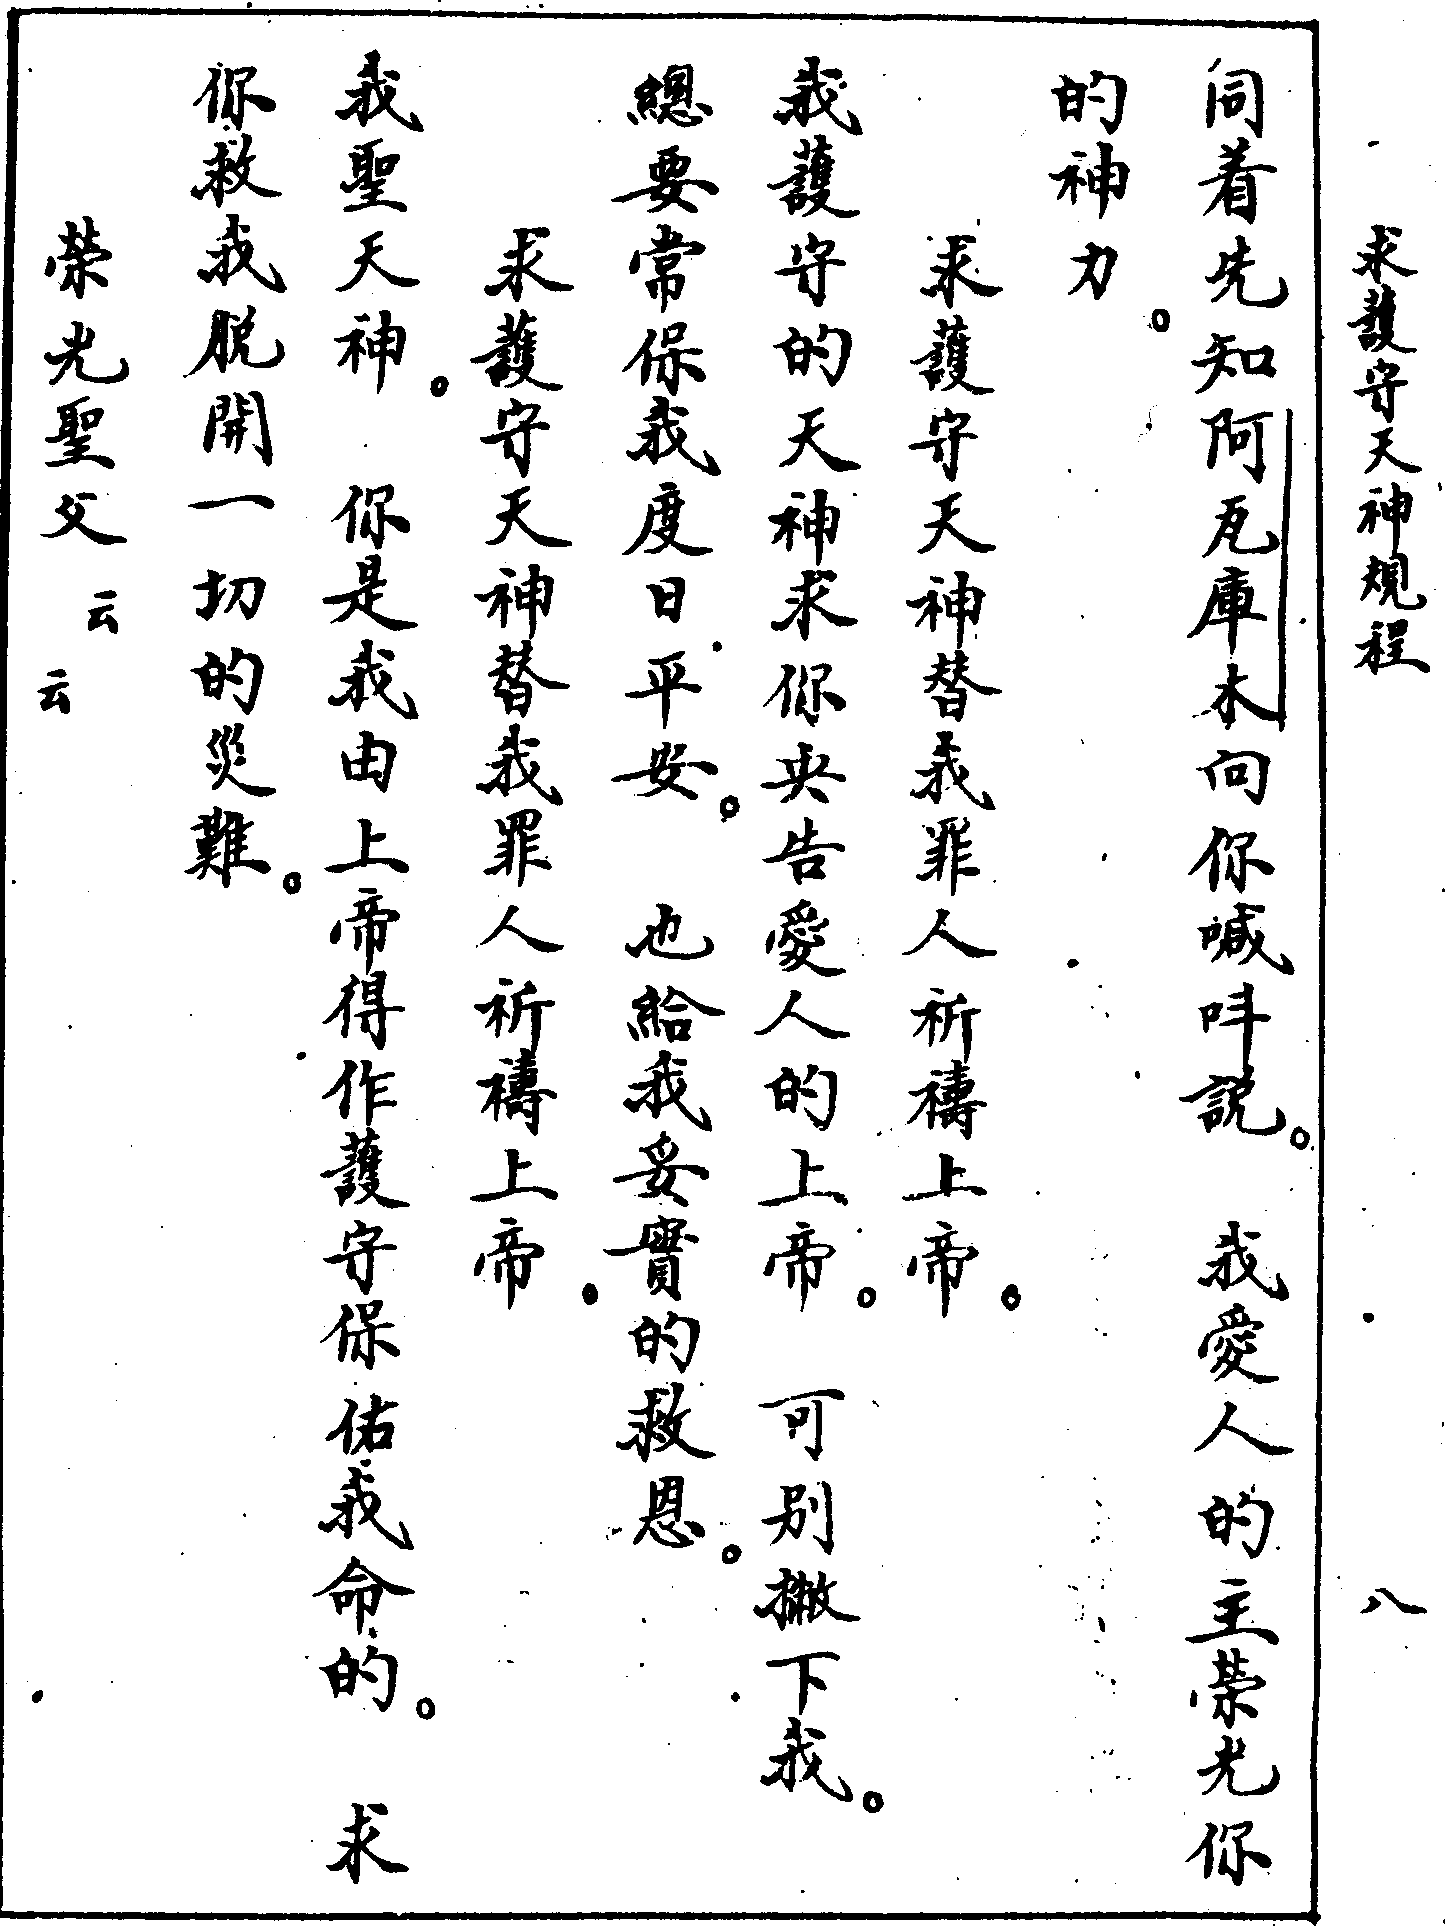 求護守天神規程 八
同着先知阿瓦庫木向你喊呌說。 我愛人的主榮光你
的神力。
求護守天神替我罪人祈禱上帝。
我護守的天神求你央告愛人的上帝。 可別撇下我。
總要常保我度日平安。 也給我妥實的救恩。
求護守天神替我罪人祈禱上帝。
我聖天神。 你是我由上帝得作護守保佑我命的。 求
你救我脫開一切的災難。
榮光聖父云云